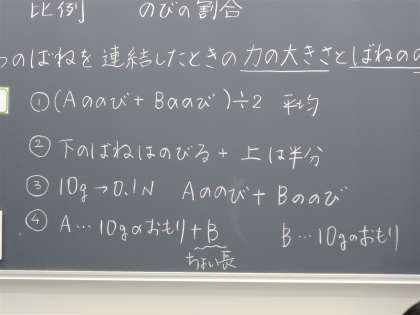 比例 のびの割合
つのばねを連結したときの力の大きさとばねのの
① (Aののび + Bののび)÷2 平均
② 下のばねはのびる + 上は半分
③ 10g→0.1N Aののび + Bののび
④ A…10gのおもり + B B…10gのおもり
ちょい長